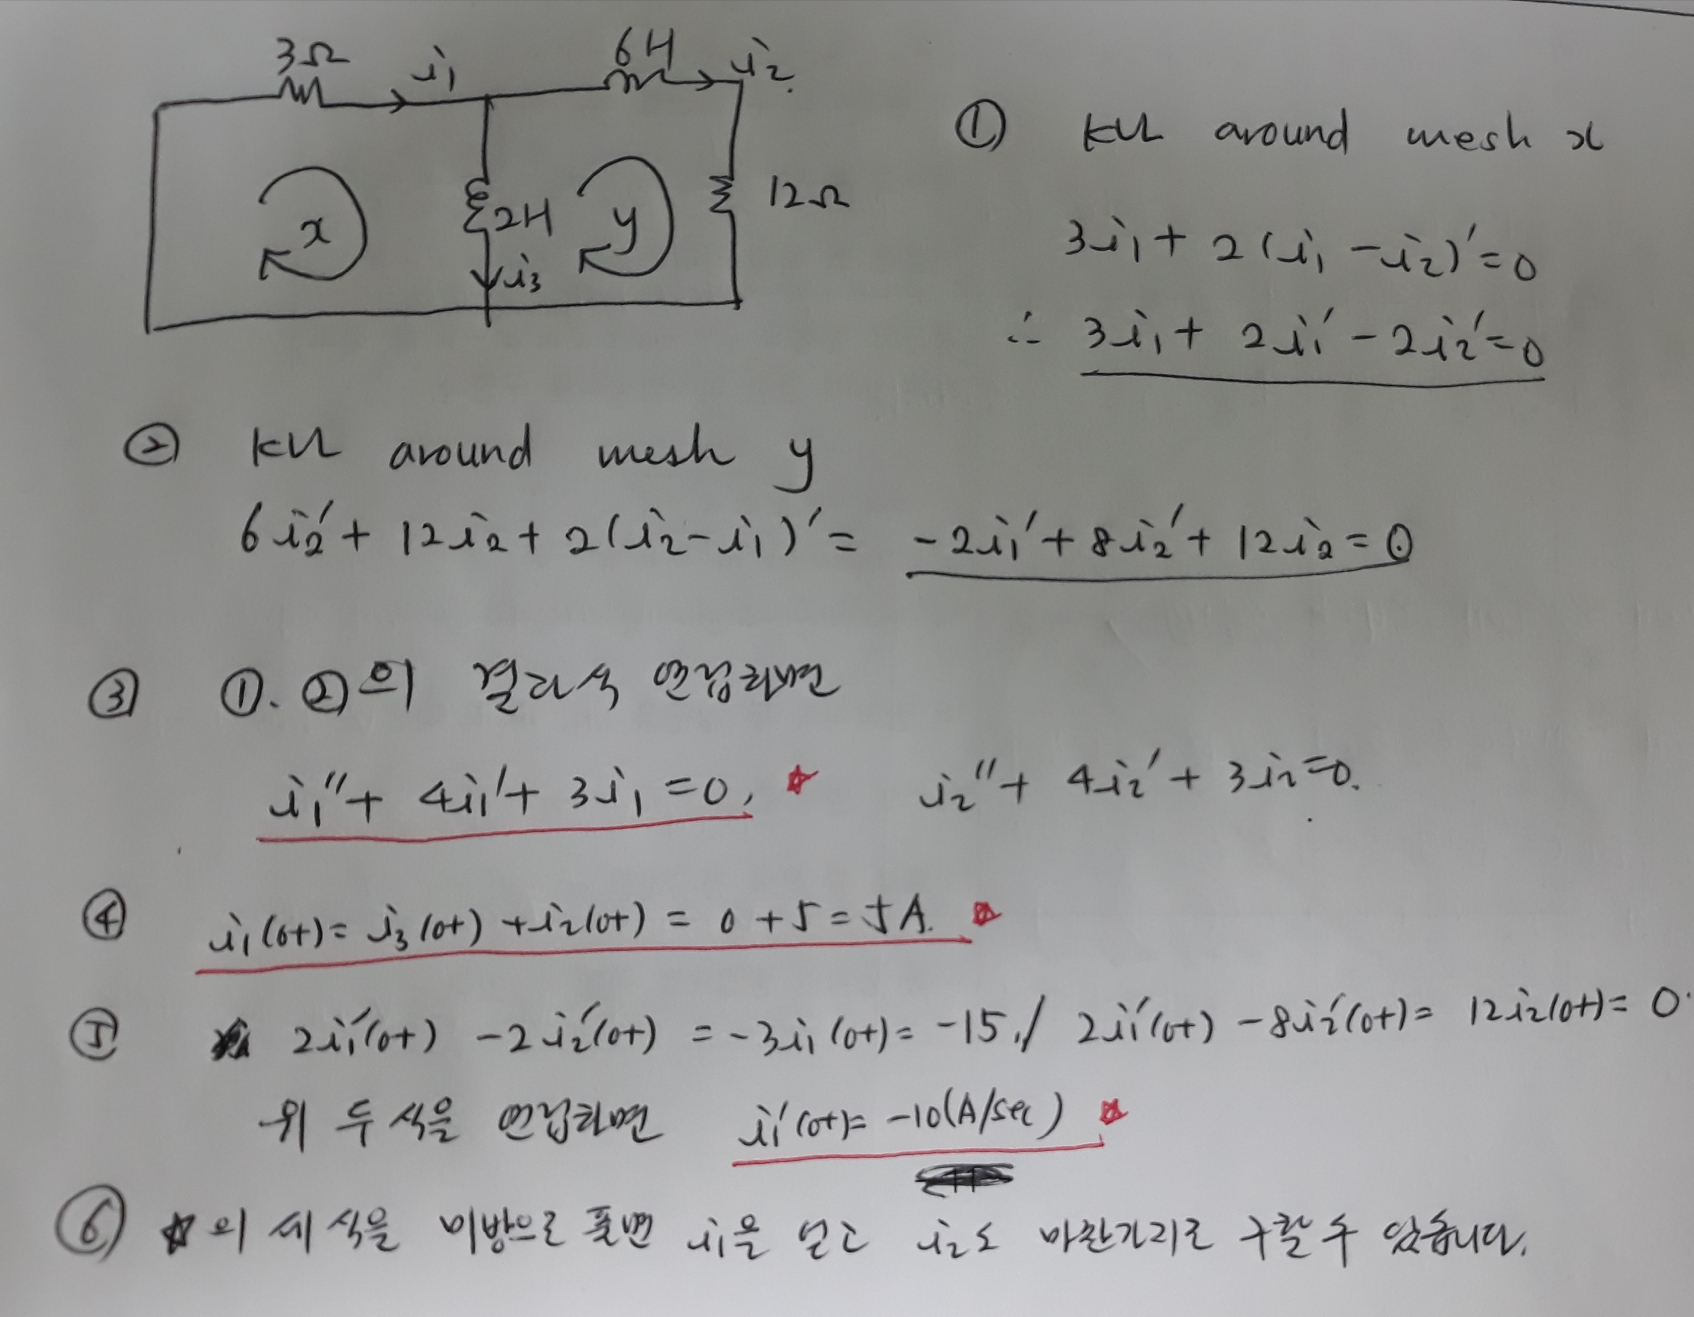 3Ω i₁ 6H i₂
x 2H y 12Ω
i₃
① KVL around mesh x
3i₁ + 2(i₁ - i₂)' = 0
∴ 3i₁ + 2i₁' - 2i₂' = 0
② KVL around mesh y
6i₂' + 12i₂ + 2(i₂ - i₁)' = -2i₁' + 8i₂' + 12i₂ = 0
③ ①. ②의 결과식 연립하면
i₁'' + 4i₁' + 3i₁ = 0, ☆ i₂'' + 4i₂' + 3i₂ = 0.
④ i₁(0+) = i₃(0+) + i₂(0+) = 0 + 5 = 5A. ☆
⑤ 2i₁'(0+) - 2i₂'(0+) = -3i₁(0+) = -15 / 2i₁'(0+) - 8i₂'(0+) = 12i₂(0+) = 0.
위 두 식을 연립하면 i₁'(0+) = -10(A/sec) ☆
⑥ ☆의 세 식을 미방으로 풀면 i₁을 얻고 i₂도 마찬가지로 구할 수 있습니다.